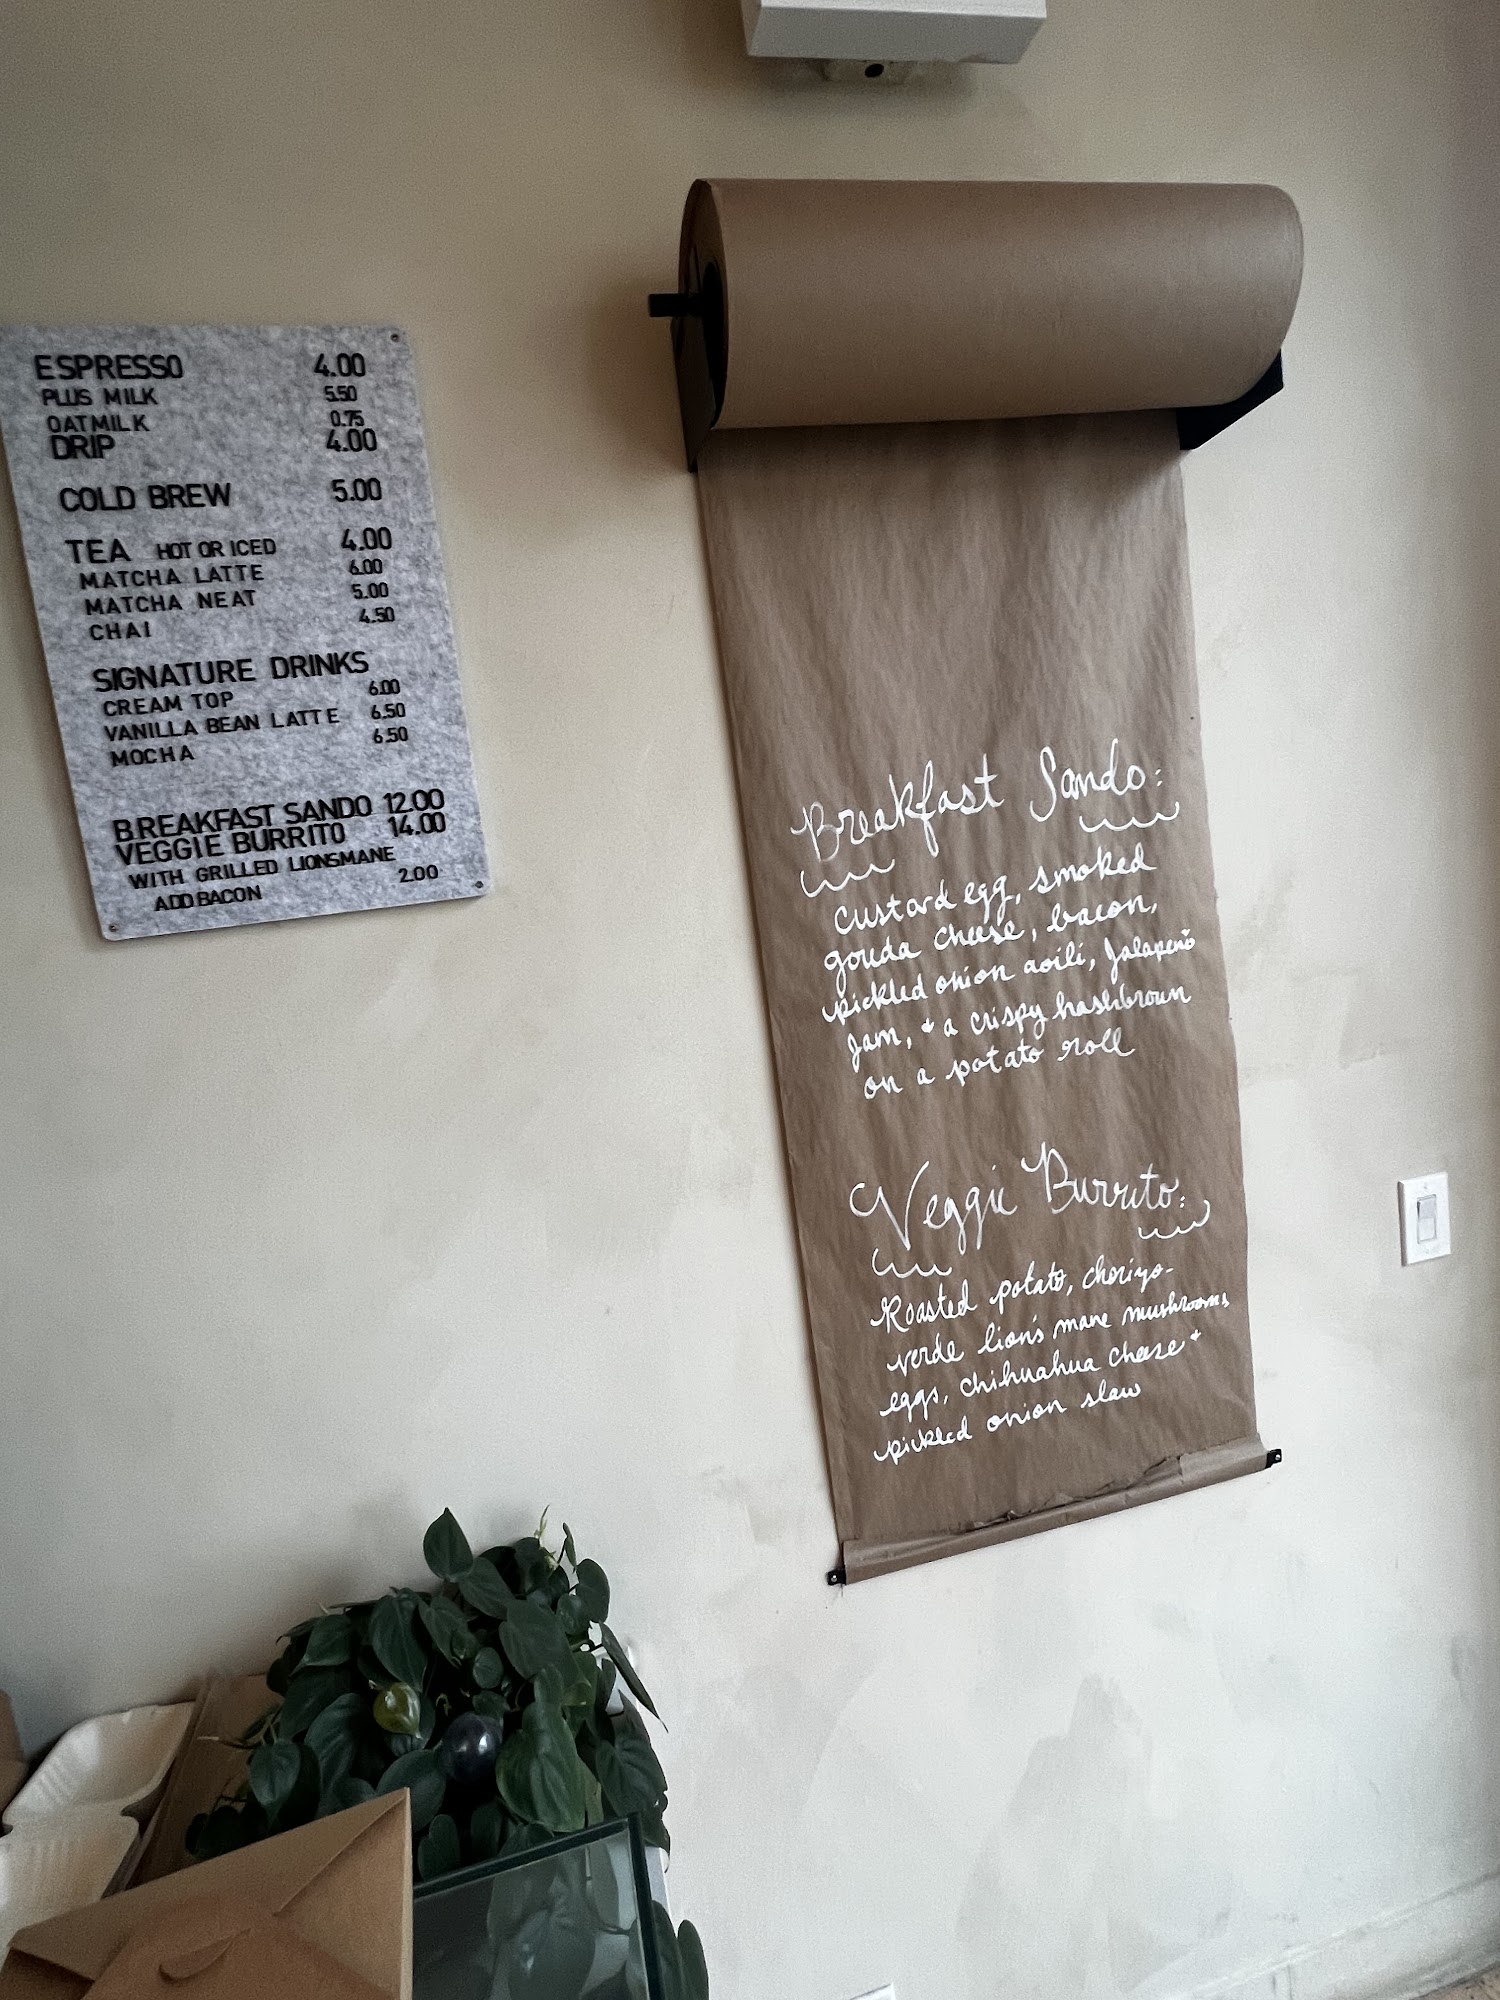 ESPRESSO 4.00
PLUS MILK 5.50
OATMILK 0.75
DRIP 4.00
COLD BREW 5.00
TEA HOT OR ICED 4.00
MATCHA LATTE 6.00
MATCHA NEAT 5.00
CHAI 4.50
SIGNATURE DRINKS
CREAM TOP 6.00
VANILLA BEAN LATTE 6.50
MOCHA 6.50
BREAKFAST SANDO 12.00
VEGGIE BURRITO 14.00
WITH GRILLED LIONSMANE
ADD BACON 2.00
Breakfast Sando:
custard egg, smoked
gouda cheese, bacon,
pickled onion aoili, Jalapeño
jam, + a crispy hashbrown
on a potato roll
Veggie Burrito:
Roasted potato, chorizo-
verde lion's mane mushrooms,
eggs, chihuahua cheese +
pickled onion slaw